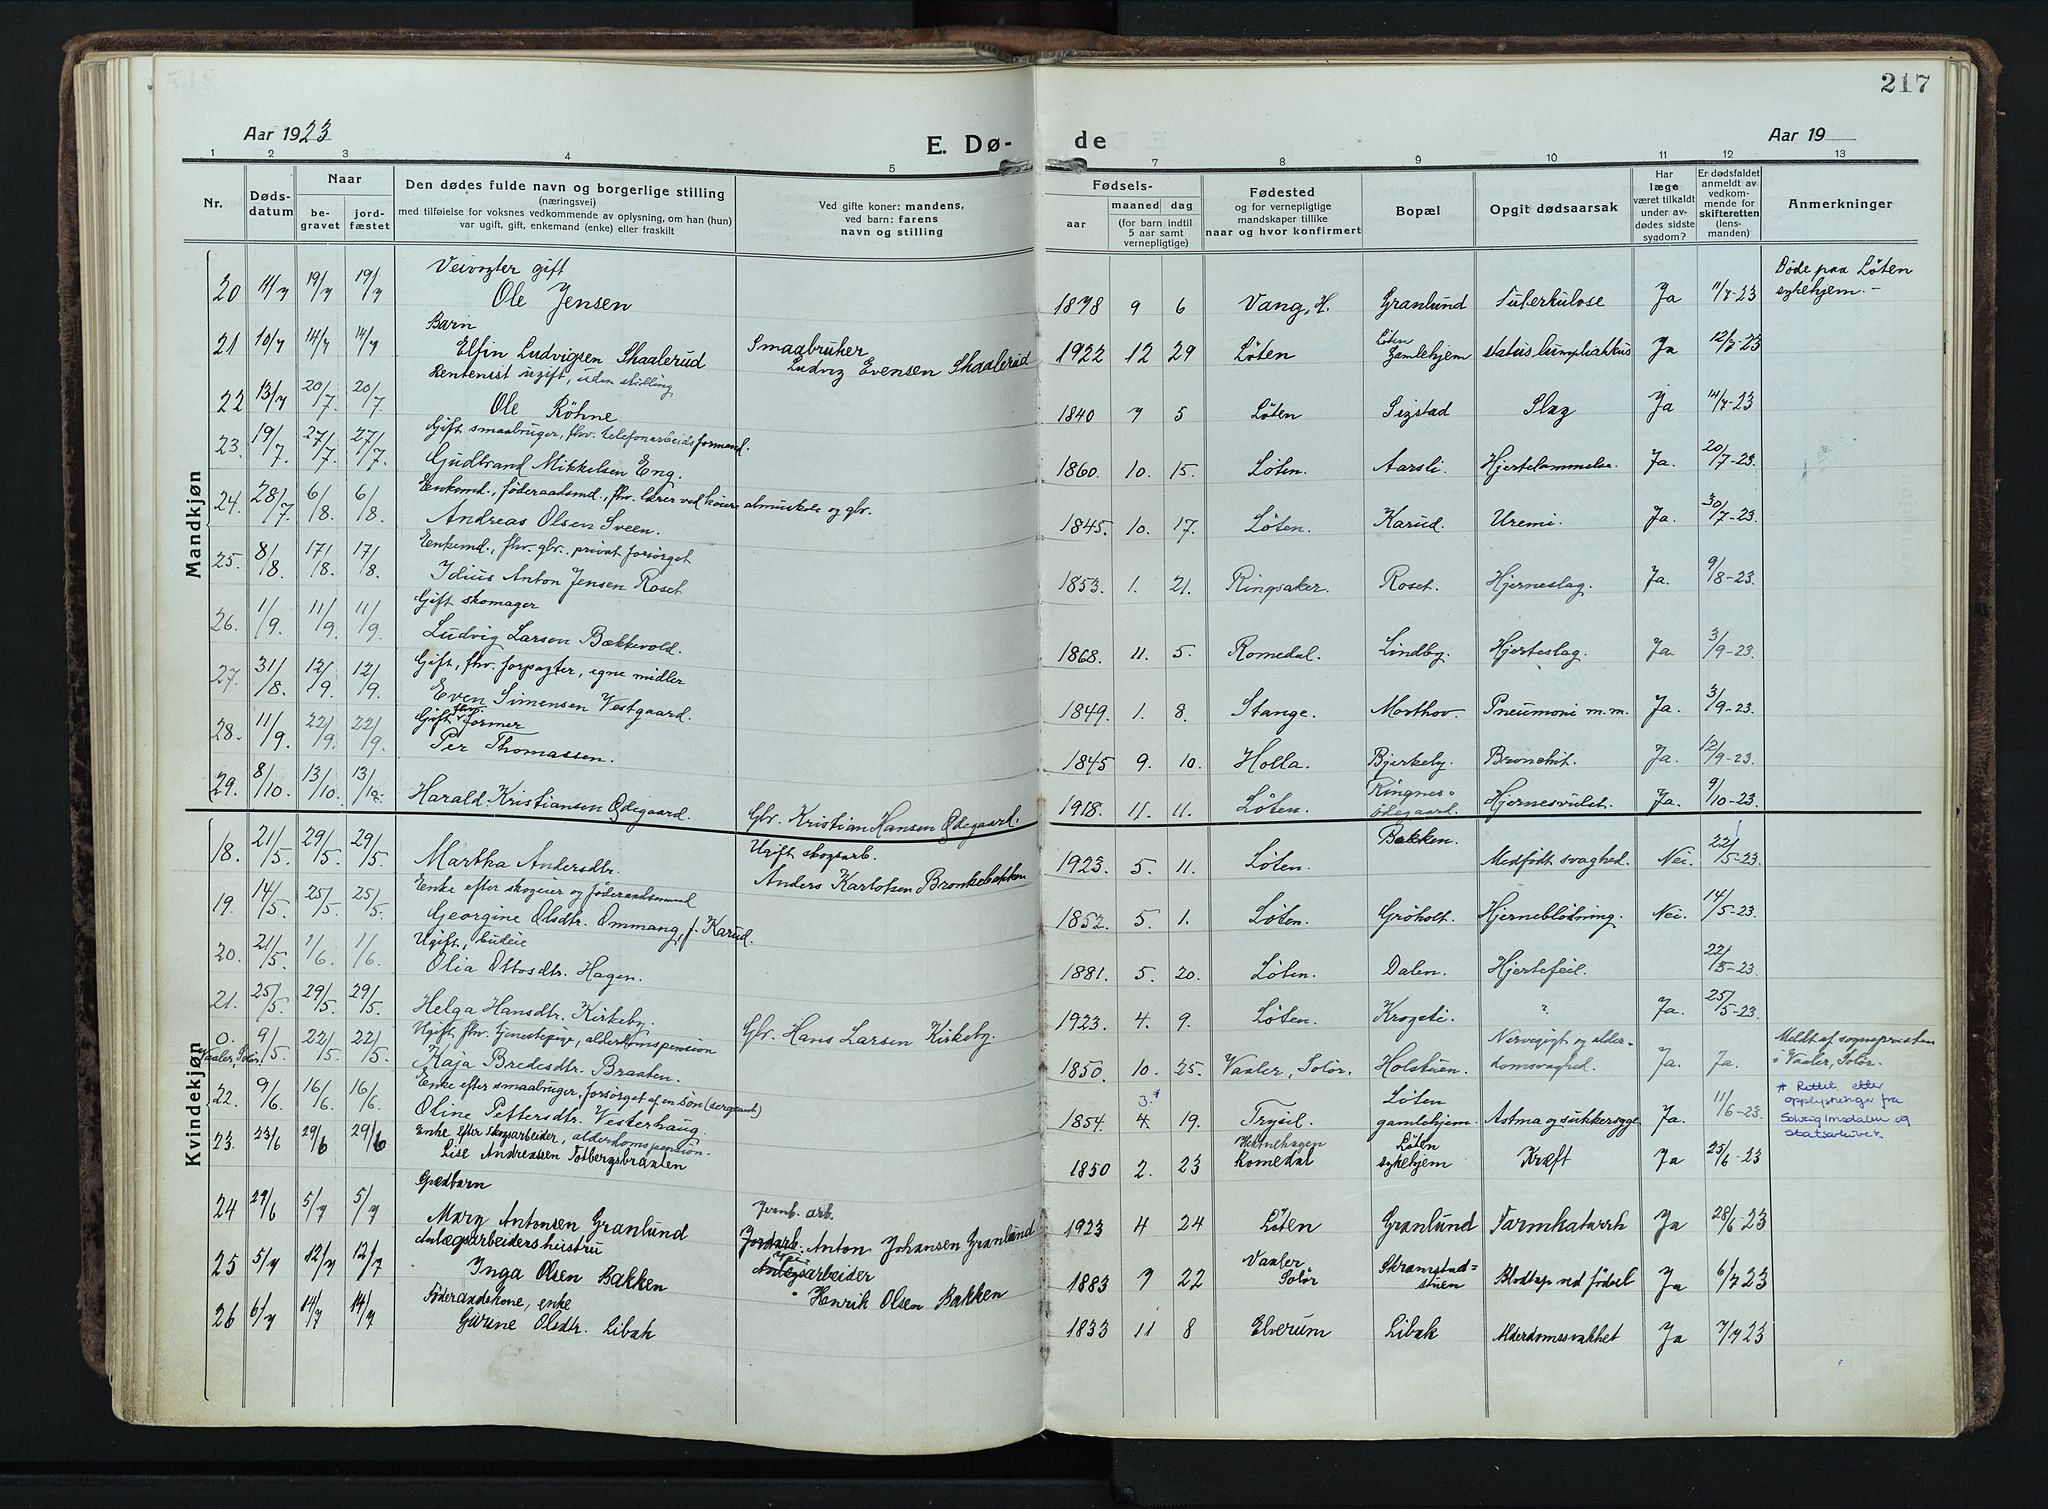 217
Aar 1923
E. Dø-
de
Aar 19
1 2 3 4 5 7 8 9 10 11 12 13
Nr. Døds-datum Naar be-gravet jord-fæstet
Den dødes fulde navn og borgerlige stilling
(næringsvei)
med tilføielse for voksnes vedkommende av oplysning, om han (hun)
var ugift, gift, enkemand (enke) eller fraskilt
Ved gifte koner: mandens,
ved barn: farens
navn og stilling
Fødsels-
aar maaned dag
(for barn indtil
5 aar samt
vernepligtige)
Fødested
og for vernepligtige
mandskaper tillike
naar og hvor konfirmert
Bopæl
Opgit dødsaarsak
Har
læge
været tilkaldt
under av-
dødes sidste
sygdom?
Er dødsfaldet
anmeldt av
vedkom-
mende for
skifteretten
(lens-
manden)
Anmerkninger
Mandkjøn
Veivogter gift
20 11/7 19/7 19/7 Ole Jensen 1878 9 6 Vang, H. Granlund Tuberkulose Ja 11/7-23 Døde paa Løten
sykehjem.-
Barn
21 10/7 14/7 14/7 Elfin Ludvigsen Skaalerud Smaabruker
Ludvig Evensen Skaalerud 1922 12 29 Løten Løten
Gamlehjem Ja 12/7-23
Rentenist ugift, uden stilling
22 13/7 20/7. 20/7. Ole Röhne 1840 7 5 Løten Sigstad Slag Ja 14/7-23
Gift smaabruger, fhv. telefonarbeidsformand.
23. 19/7. 27/7. 27/7. Gudbrand Mikkelsen Eng. 1860. 10. 15. Løten. Aarsli. Hjertelammelse. Ja. 20/7-23.
Enkemd., føderaadsmd., fhv. lærer ved høiere almuskole og gbr.
24. 28/7. 6/8. 6/8. Andreas Olsen Sveen. 1845. 10. 17. Løten. Karud. Uremi. Ja. 30/7-23.
Enkemd., fhv. gbr., privat forsørget
25. 8/8. 17/8. 17/8. Idius Anton Jensen Roset 1853. 1. 21. Ringsaker. Roset. Hjerneslag. Ja. 9/8-23.
Gift skomager
26. 1/9. 11/9. 11/9. Ludvig Larsen Bækkevold. 1868. 11. 5. Romedal. Lindby. Hjerteslag. Ja. 3/9-23.
Gift, fhv. forpagter, egne midler
27. 31/8. 12/9. 12/9. Even Simensen Vestgaard. 1849. 1. 8. Stange. Morthov. Pneumoni m.m. Ja. 3/9-23.
Gift fhv. former
28. 11/9. 22/9. 22/9. Per Thomassen. 1845 9. 10. Holla. Bjerkeby. Bronchit. Ja. 12/9-23.
29. 8/10. 13/10. 13/10. Harald Kristiansen Ødegaard. Gbr. Kristian Hansen Ødegaard. 1918. 11. 11. Løten. Ringnes-
ødegaard. Hjernesvulst. Ja. 9/10-23.
Kvindekjøn
18. 21/5. 29/5. 29/5. Martha Andersdtr. Ugift skogsarb.
Anders Karlotsen Bronkebakken 1923. 5. 11. Løten. Bakken. Medfødt svaghed. Nei. 22/5-23.
Enke efter skogeier og føderaadsmand
19. 14/5. 25/5. 25/5. Georgine Olsdtr. Ommang, f. Karud. 1852. 5. 1. Løten. Grøholt. Hjerneblødning. Nei. 14/5-23.
Ugift, budeie
20. 21/5. 1/6. 1/6. Olia Ottosdtr. Hagen. 1881. 5. 20. Løten. Dalen. Hjertefeil. 22/5-23.
21. 25/5. 29/5. 29/5. Helga Hansdtr. Kirkeby. Gbr. Hans Larsen Kirkeby. 1923. 4. 9. Løten. Krogsti. ? Ja. 25/5-23.
Ugift, fhv. tjenestepige, alderdomspension
0.
Vaaler, Solør. 9/5. 22/5. 22/5. Kaja Bredesdtr. Braaten. 1850. 10. 25. Vaaler, Solør. Holstuen. Nervegigt og alder-
domsvaghed. Ja. Ja. Meldt af sognepresten
i Vaaler, Solør.
Enke efter smaabruger, forsørget af en søn (sergeant)
22. 9/6. 16/6. 16/6. Oline Pettersdtr. Vesterhaug. 1854. 3.* 4. 19. Trysil. Løten
gamlehjem. Astma og sukkersyge Ja. 11/6-23. * Rettet etter
opplysninger fra
Solveig Imsdalen og
Statsarkivet.
Enke efter skogsarbeider, alderdomspension.
23. 23/6 29/6 29/6 Lise Andreassen Totbergsbraaten 1850 2. 23 Romedal Løten
sykehjem Kræft Ja 25/6-23
Spædbarn
24 29/6 5/7 5/7 Mary Antonsen Granlund Jernb. arb.
Jordarb. Anton Johansen Granlund 1923 4 24 Løten Granlund Tarmkatarrh Ja 28/6-23
Anlægsarbeidershustru
25 5/7 12/7 12/7 Inga Olsen Bakken Anlægsarbeider
Henrik Olsen Bakken 1883 7 22 Vaaler
Solør Skramstad-
stuen Blodtap ved fødsel Ja 6/7 23
Føderaadskone, enke
26 6/7 14/7 14/7 Gurine Olsdtr. Libak 1833 11 8 Elverum Libak Alderdomssvakhet Ja 7/7 23